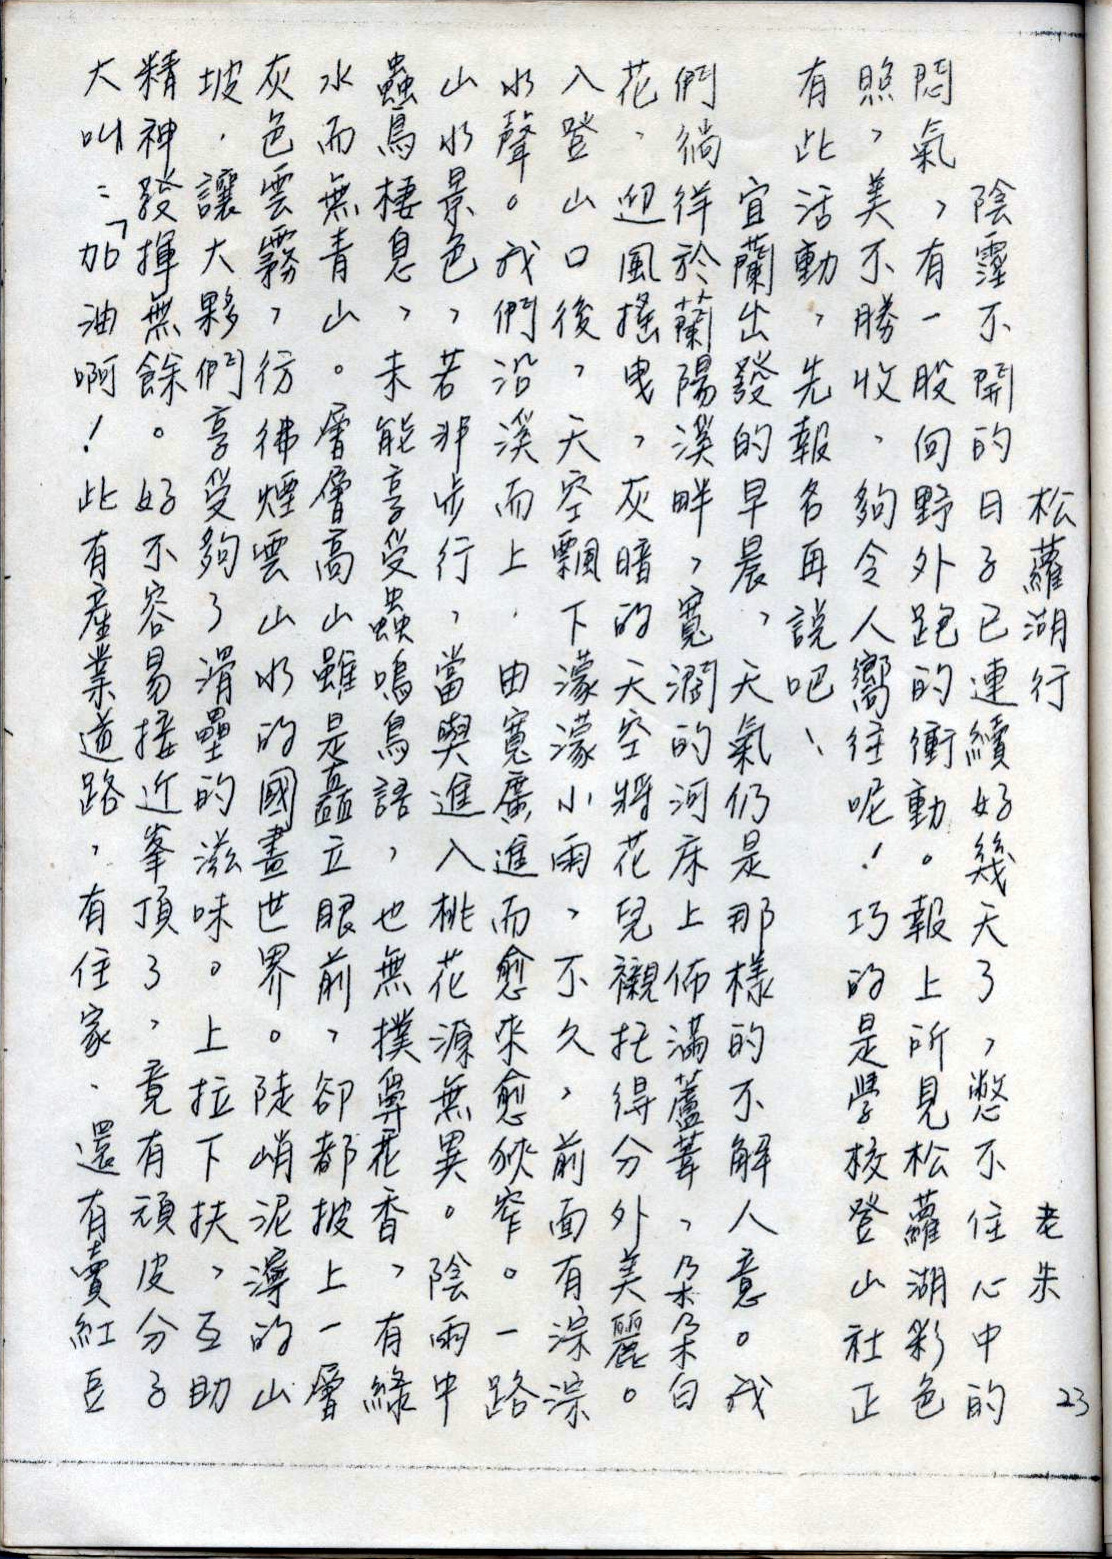 松蘿湖行　老朱　23
陰霪不開的日子已連續好幾天了，憋不住心中的
悶氣，有一股向野外跑的衝動。報上所見松蘿湖彩色
照，美不勝收，夠令人嚮往呢！巧的是學校登山社正
有此活動，先報名再說吧、
宜蘭出發的早晨，天氣仍是那樣的不解人意。我
們徜徉於蘭陽溪畔，寬濶的河床上佈滿蘆葦，朵朵白
花，迎風搖曳，灰暗的天空將花兒襯托得分外美麗。
入登山口後，天空飄下濛濛小雨，不久，前面有淙淙
水聲。我們沿溪而上，由寬廣進而愈來愈狹窄。一路
山水景色，若非步行，當與進入桃花源無異。陰雨中
蟲鳥棲息，未能享受蟲鳴鳥語，也無撲鼻花香，有綠
水而無青山。層層高山雖是矗立眼前，卻都披上一層
灰色雲霧，彷彿煙雲山水的國畫世界。陡峭泥濘的山
坡，讓大夥們享受夠了滑壘的滋味。上拉下扶，互助
精神發揮無餘。好不容易接近峯頂了，竟有頑皮分子
大叫：「加油啊！此有產業道路，有住家、還有賣紅豆